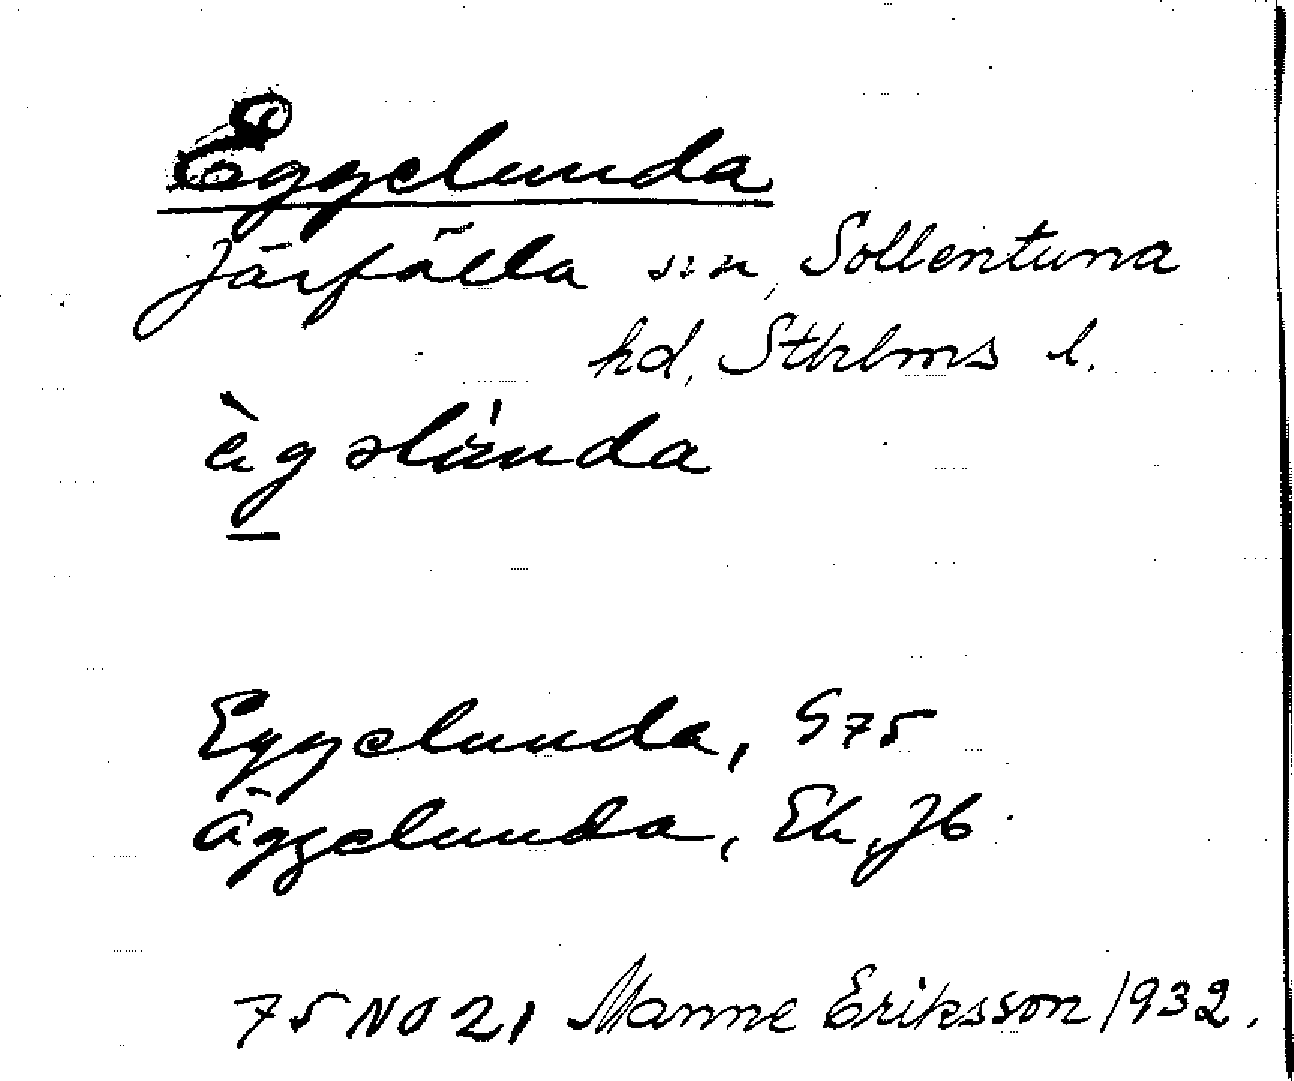 Eggelunda
Järfälla sn, Sollentuna
hd, Sthlms l.
Eggelunda, G75
Äggelunda, Ek, Jb.
75 NO 21 Manne Eriksson 1932.